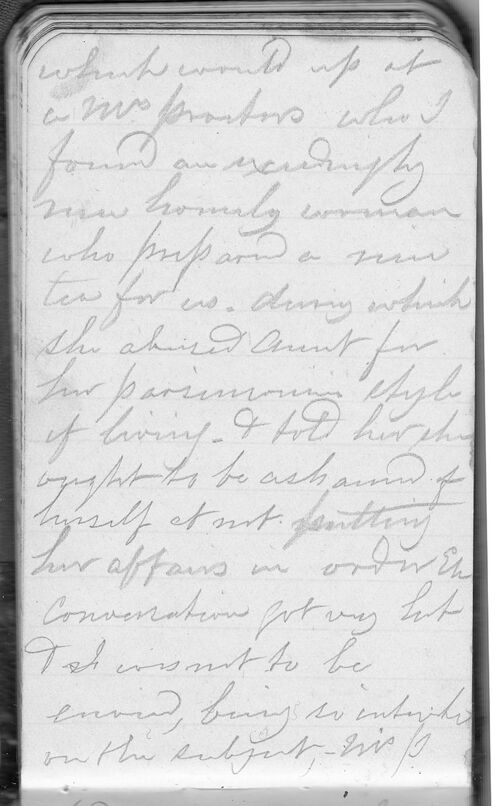 which would up at
a Mrs Proctors who I
found an exceedingly
nice homely woman
who prepared a nice
tea for us. during which
she abused Aunt for
her parsimonious style
of living - & told her she
ought to be ashamed of
herself at not putting
her affairs in order
conversation got very hot
& was not to be
envied, being so
on the subject, - Mrs P